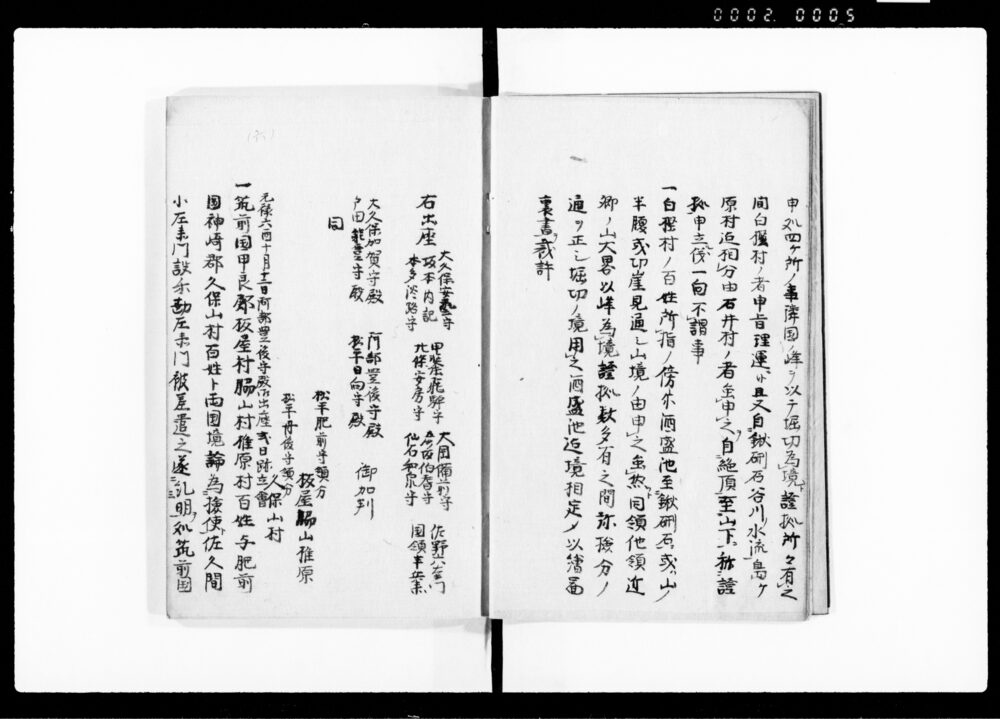 0002 0005
申処四ケ所ノ事隣国ノ峰ヲ以テ堀切為境證拠所々有之
間白程村ノ者申旨理運ニ候且又自鍬硎石谷川ノ水流島ケ
原村迄相分由石井村ノ者虽申之自絶頂至山下、称證
拠申立儀一向不謂事
一白程村ノ百姓所指ノ傍尓酒盛池至鍬硎石或ハ山ノ
半腹或切崖見通シ山境ノ由申之虽然同領他領近
郷ノ山大畧以峰為境證拠数多有之間弥検分ノ
通ヲ正シ堀切ノ境用之酒盛池迄境相定メ以繪図
裏書裁許
右出座
大久保安藝守
坂本内記
本多淡路守
甲斐飛騨守
北條安房守
大岡備前守
仙石和泉守
佐野六右衛門
国領半兵衛
大久保加賀守殿
戸田能登守殿
阿部豊後守殿
松平日向守殿
御加判
同
松平肥前守領分
板屋脇山椎原
松平丹後守領分
久保山村
元禄六酉十月十二日阿部豊後守殿御出座式日跡立會
一筑前国早良郡板屋村脇山村椎原村百姓与肥前
国神崎郡久保山村百姓ト両国境論為検使佐久間
小左衛門設楽勘左衛門被差遣之遂糺明処筑前国